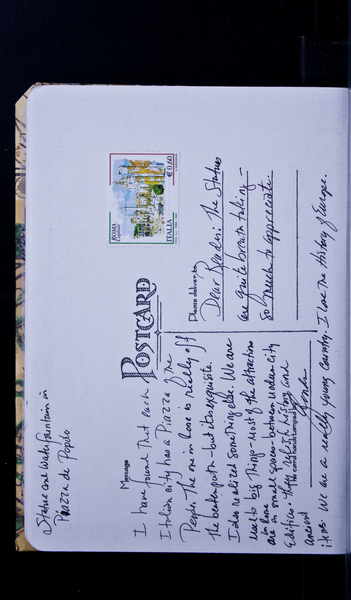 Statue and Water Fountain in
Piazza de Popolo
POSTCARD
ROMA
ITALIA
€0,60
Message
I have found that each
Italian city has a Piazza of the
People. The one in Rome is really off
the beaten path - but it is exquisite.
I also realized something else. We are
used to big things - most of the attractions
in Rome
are in small spaces - between modern city
Edifices - They
history and
ancient
It is
We are a really young country. I love the History of Europe.
Please deliver to:
Dear Reader: The Statues
are quite breath taking -
So much to appreciate.